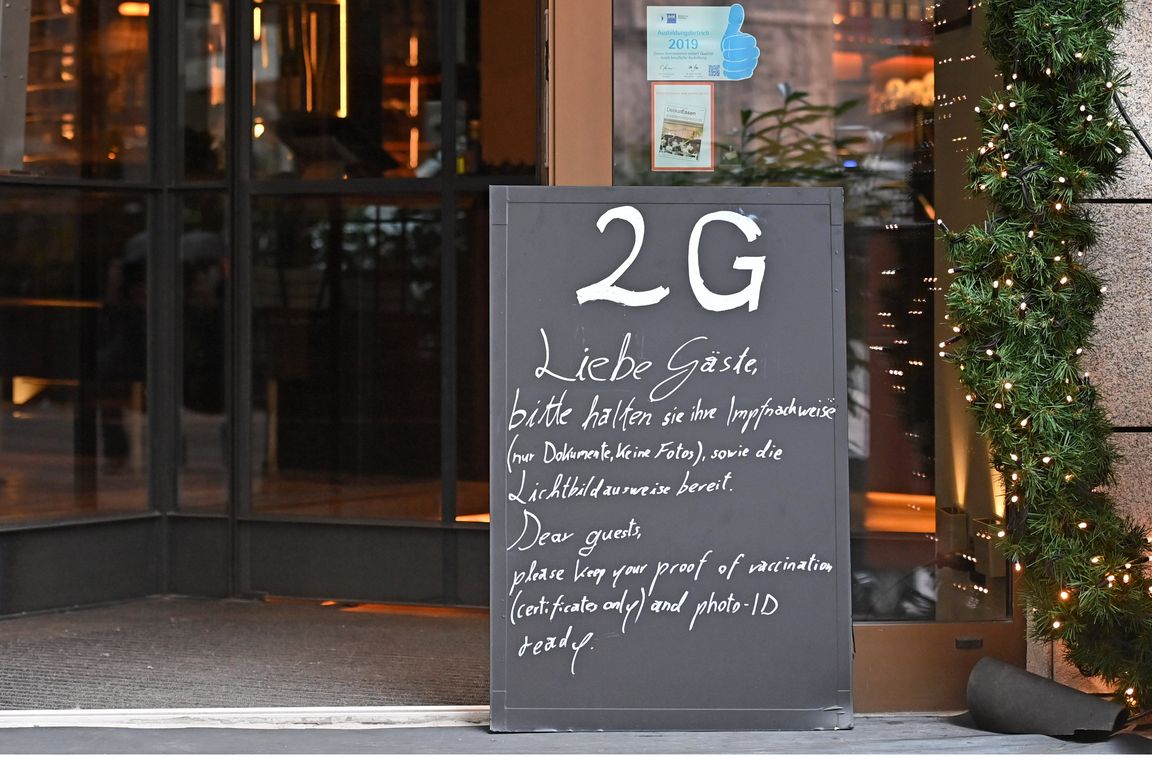 Ausbildungsbetrieb
2019
2G
Liebe Gäste,
bitte halten sie ihre Impfnachweise
(nur Dokumente, keine Fotos), sowie die
Lichtbildausweise bereit.
Dear guests,
please keep your proof of vaccination
(certificates only) and photo-ID
ready.